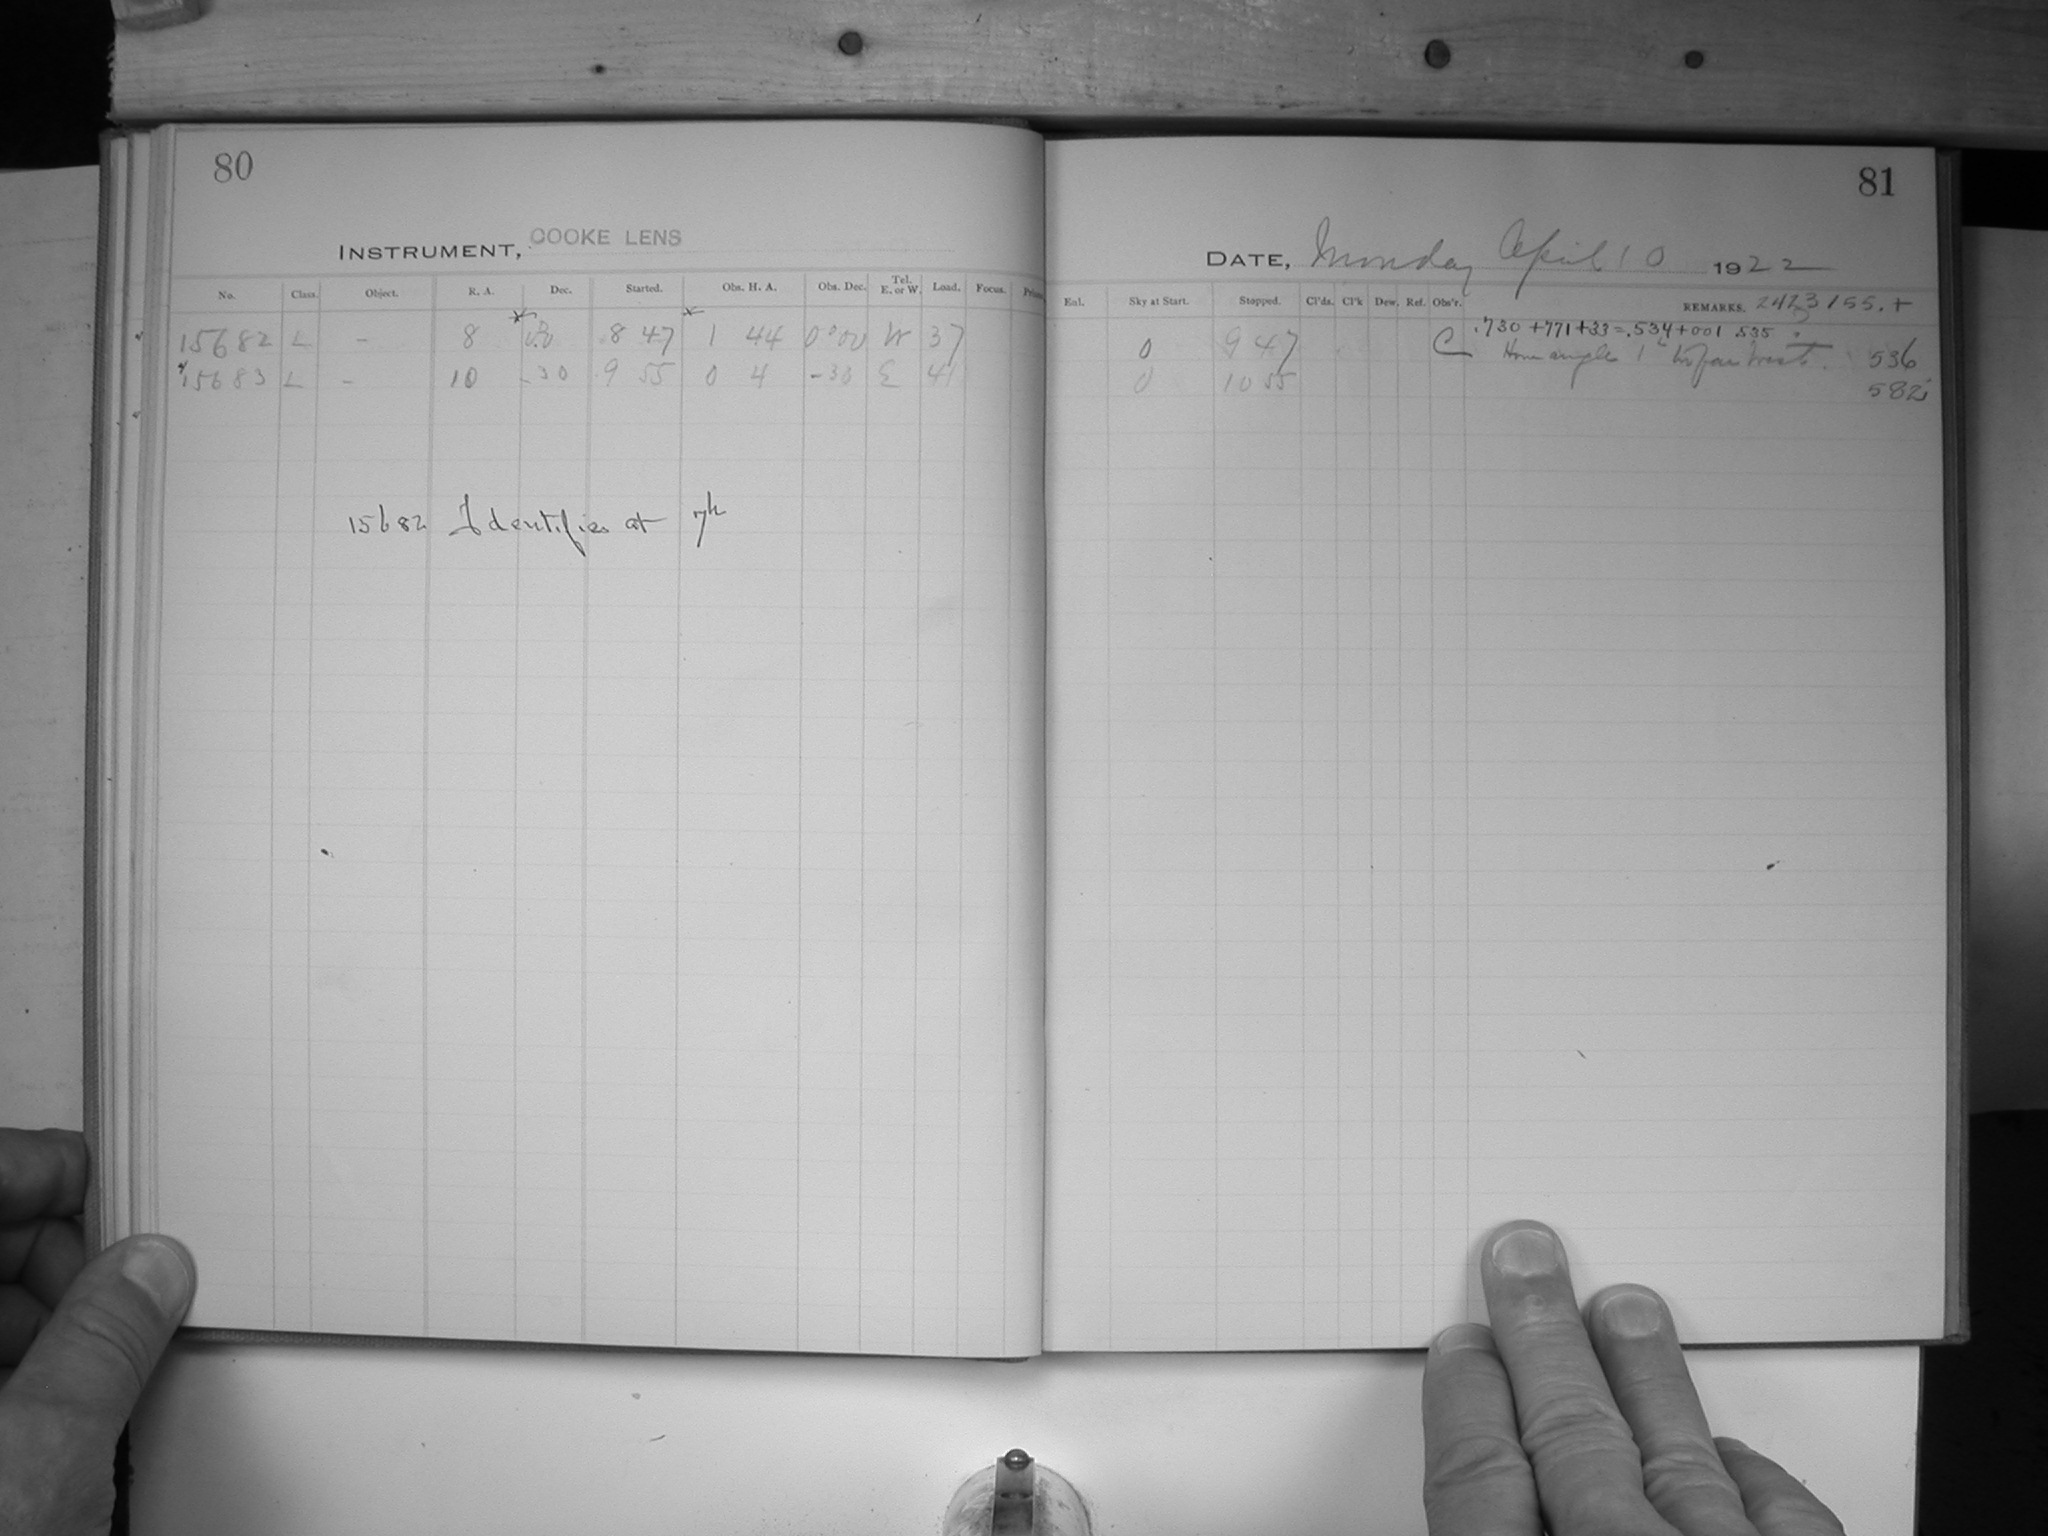 80
INSTRUMENT, COOKE LENS
No. Class. Object. R. A. Dec. Started. Obs. H. A. Obs. Dec. Tel. E. or W. Load. Focus.
15682 L - 8 8 47 1 44 0°00 W 37
15683 L - 10 -30 9 55 0 4 -30 E 41
15682 Identifies at 7h
81
DATE, Monday April 10 1922
Enl. Sky at Start. Stopped. Cl'ds. Cl'k Dew. Ref. Obs'r. REMARKS. 2423155.+
.730 +771+33=.534+001 .535
0 9 47 C Hour angle 1h too far West. 536
0 10 55 582